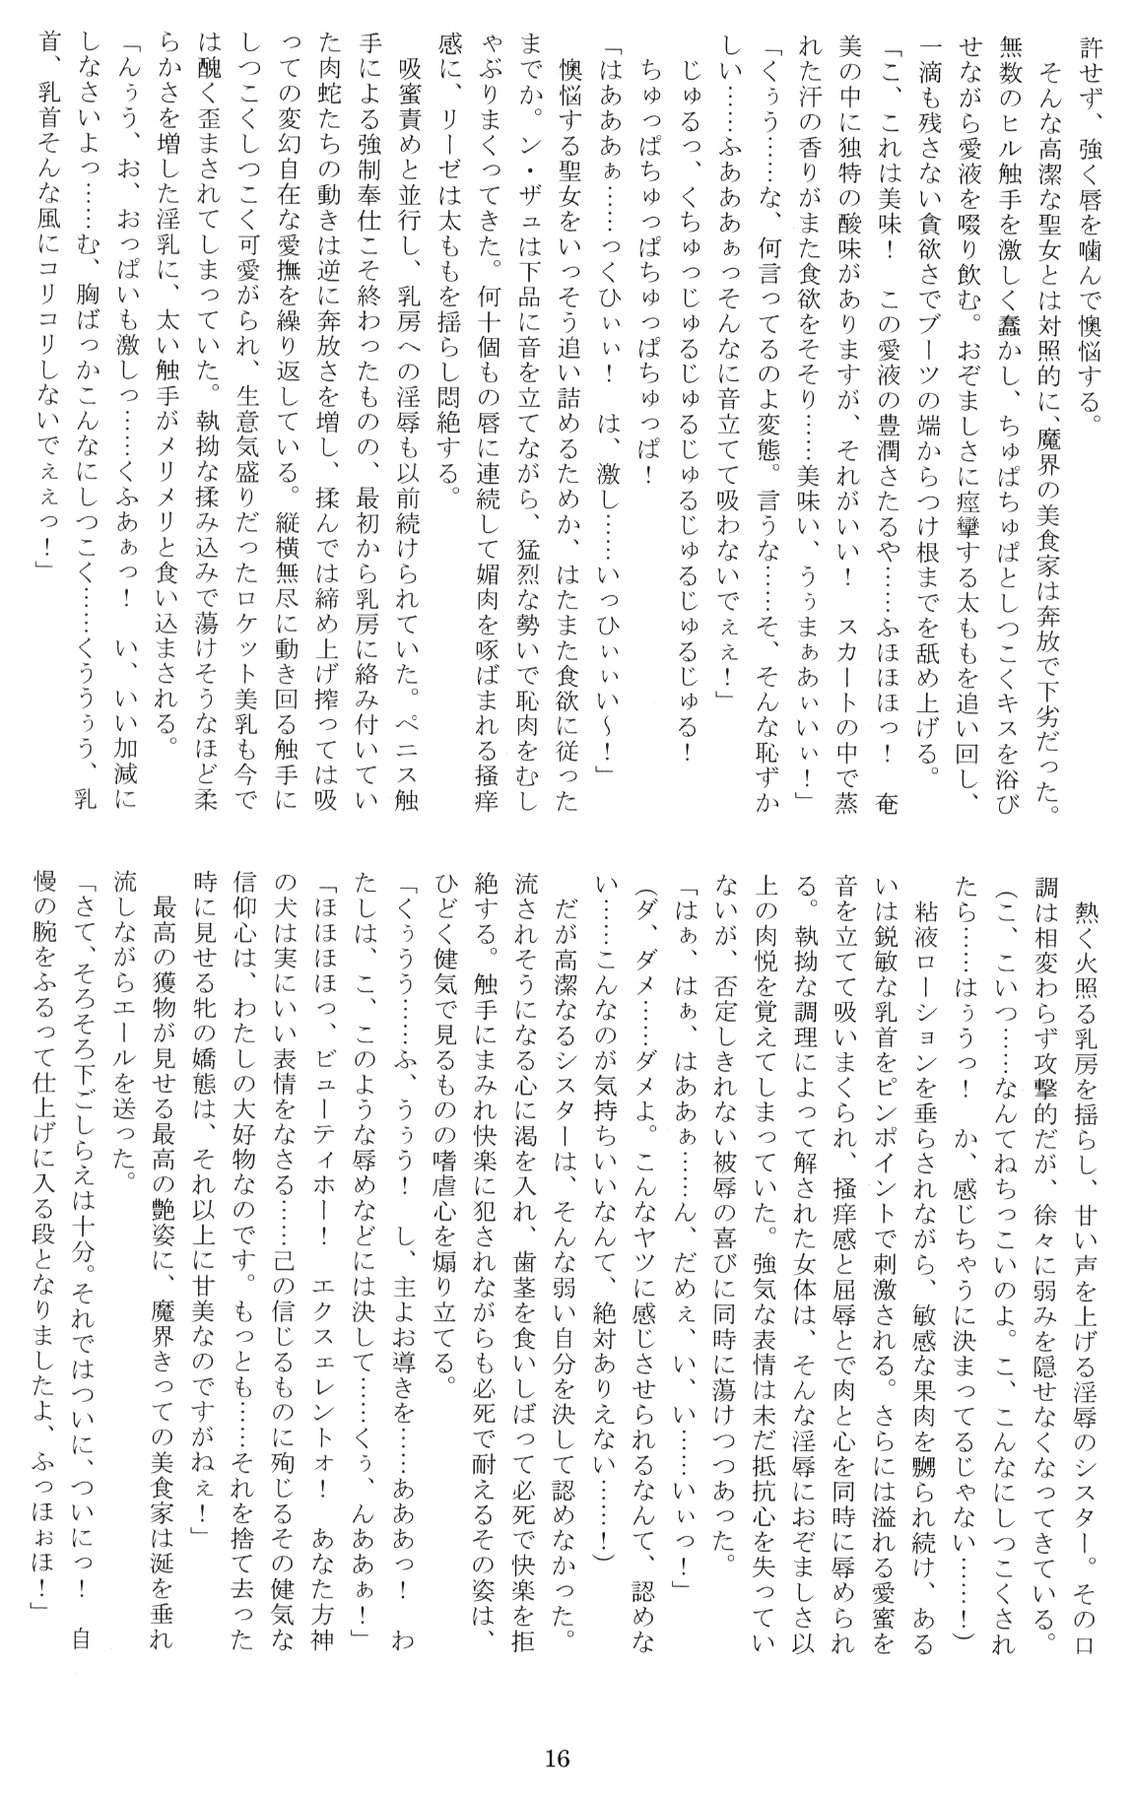 許せず、強く唇を噛んで懊悩する。
そんな高潔な聖女とは対照的に、魔界の美食家は奔放で下劣だった。
無数のヒル触手を激しく蠢かし、ちゅぱちゅぱとしつこくキスを浴び
せながら愛液を啜り飲む。おぞましさに痙攣する太ももを追い回し、
一滴も残さない貪欲さでブーツの端からつけ根までを舐め上げる。
「こ、これは美味！　この愛液の豊潤さたるや……ふほほほっ！　奄
美の中に独特の酸味がありますが、それがいい！　スカートの中で蒸
れた汗の香りがまた食欲をそそり……美味い、うぅまぁあぃいぃ！」
「くぅう……な、何言ってるのよ変態。言うな……そ、そんな恥ずか
しい……ふあああぁっそんなに音立てて吸わないでぇぇ！」
じゅるっ、くちゅっじゅるじゅるじゅるじゅるじゅるじゅる！
ちゅっぱちゅっぱちゅっぱちゅっぱ！
「はあああぁ……っくひぃぃ！　は、激し……いっひぃぃい～！」
懊悩する聖女をいっそう追い詰めるためか、はたまた食欲に従った
までか。ン・ザュは下品に音を立てながら、猛烈な勢いで恥肉をむし
ゃぶりまくってきた。何十個もの唇に連続して媚肉を啄ばまれる掻痒
感に、リーゼは太ももを揺らし悶絶する。
吸蜜責めと並行し、乳房への淫辱も以前続けられていた。ペニス触
手による強制奉仕こそ終わったものの、最初から乳房に絡み付いてい
た肉蛇たちの動きは逆に奔放さを増し、揉んでは締め上げ搾っては吸
っての変幻自在な愛撫を繰り返している。縦横無尽に動き回る触手に
しつこくしつこく可愛がられ、生意気盛りだったロケット美乳も今で
は醜く歪まされてしまっていた。執拗な揉み込みで蕩けそうなほど柔
らかさを増した淫乳に、太い触手がメリメリと食い込まされる。
「んぅう、お、おっぱいも激しっ……くふあぁっ！　い、いい加減に
しなさいよっ……む、胸ばっかこんなにしつこく……くううぅう、乳
首、乳首そんな風にコリコリしないでぇぇっ！」
熱く火照る乳房を揺らし、甘い声を上げる淫辱のシスター。その口
調は相変わらず攻撃的だが、徐々に弱みを隠せなくなってきている。
（こ、こいつ……なんてねちっこいのよ。こ、こんなにしつこくされ
たら……はぅうっ！　か、感じちゃうに決まってるじゃない……！）
粘液ローションを垂らされながら、敏感な果肉を嬲られ続け、ある
いは鋭敏な乳首をピンポイントで刺激される。さらには溢れる愛蜜を
音を立てて吸いまくられ、掻痒感と屈辱とで肉と心を同時に辱められ
る。執拗な調理によって解された女体は、そんな淫辱におぞましさ以
上の肉悦を覚えてしまっていた。強気な表情は未だ抵抗心を失ってい
ないが、否定しきれない被辱の喜びに同時に蕩けつつあった。
「はぁ、はぁ、はああぁ……ん、だめぇ、い、い……いぃっ！」
（ダ、ダメ……ダメよ。こんなヤツに感じさせられるなんて、認めな
い……こんなのが気持ちいいなんて、絶対ありえない……！）
だが高潔なるシスターは、そんな弱い自分を決して認めなかった。
流されそうになる心に渇を入れ、歯茎を食いしばって必死で快楽を拒
絶する。触手にまみれ快楽に犯されながらも必死で耐えるその姿は、
ひどく健気で見るものの嗜虐心を煽り立てる。
「くぅうう……ふ、うぅう！　し、主よお導きを……あああっ！　わ
たしは、こ、このような辱めなどには決して……くぅ、んああぁ！」
「ほほほほっ、ビューティホー！　エクスェレントォ！　あなた方神
の犬は実にいい表情をなさる……己の信じるものに殉じるその健気な
信仰心は、わたしの大好物なのです。もっとも……それを捨て去った
時に見せる牝の嬌態は、それ以上に甘美なのですがねぇ！」
最高の獲物が見せる最高の艶姿に、魔界きっての美食家は涎を垂れ
流しながらエールを送った。
「さて、そろそろ下ごしらえは十分。それではついに、ついにっ！　自
慢の腕をふるって仕上げに入る段となりましたよ、ふっほぉほ！」
16